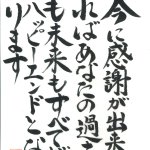 今に感謝が出来
ればあなたの過さ
も未来もすべてが
ハッピーエンドとな
ります